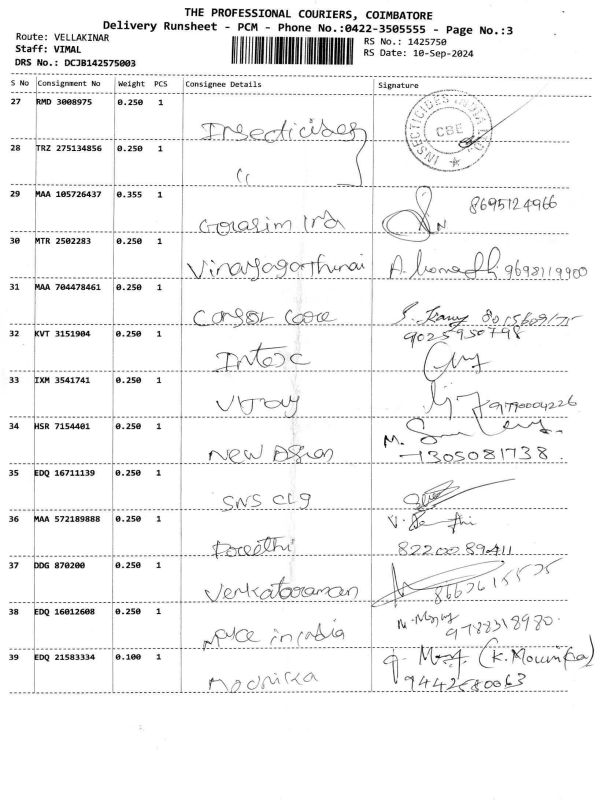 THE PROFESSIONAL COURIERS, COIMBATORE
Delivery Runsheet - PCM - Phone No.:0422-3505555 - Page No.:3
Route: VELLAKINAR RS No.: 1425750
Staff: VIMAL RS Date: 10-Sep-2024
DRS No.: DCJB142575003
S No Consignment No Weight PCS Consignee Details Signature
27 RMD 3008975 0.250 1 Insecticides
INSECTICIDES INDIA LTD. CBE
28 TRZ 275134856 0.250 1 "
29 MAA 105726437 0.355 1 8695124966
30 MTR 2502283 0.250 1 9698119900
31 MAA 704478461 0.250 1
32 KVT 3151904 0.250 1 9025950798
33 IXM 3541741 0.250 1 Vijay
34 HSR 7154401 0.250 1 New Asian M.
35 EDQ 16711139 0.250 1 SNS Clg
36 MAA 572189888 0.250 1 Preethi 8220089411
37 DDG 870200 0.250 1 Venkataraman
38 EDQ 16012608 0.250 1 Make in india 9788318980
39 EDQ 21583334 0.100 1 Mounika (K. Mounika)
9442680063